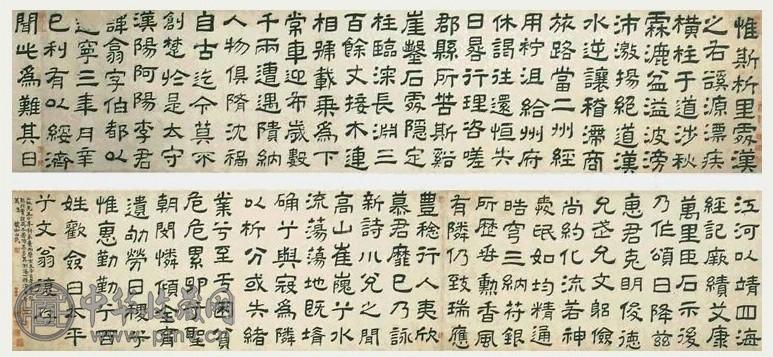 惟斯析里處漢
之右谿源漂疾
橫柱于道涉秋
霖漉盆溢波滂
沛激揚絕道漢
水逆讓稽滯商
旅路當二州經
用柠沮給州府
休謁往還恒失
日晷行理咨嗟
郡縣所苦斯谿
崖鑿石處隱定
柱臨深長淵三
百餘丈接木連
相號載乘爲下
常車迎布歲數
千兩遭遇隤納
人物俱隋沈禍
自古迄今莫不
創楚於是太守
漢陽阿陽李君
諱翕字伯都以
建寧三年月辛
巳到有以綏濟
聞此爲難其日
江河以靖四海
經記厥績艾康
萬里臣石示後
乃作頌曰降茲
惠君克明俊德
允武允文躬儉
尚約化流若神
愛氓如均精通
晧穹三納苻銀
所歷垂勳香風
有隣仍致瑞應
豐稔行人夷欣
慕君靡已乃詠
新詩曰兮之間
高山崔巍兮水
流蕩蕩地既塉
确兮與寇爲隣
以析分或失緒
業兮至于困貧
危危累卵兮聖
朝閔憐
遺劬勞日稷兮
惟惠勤勤兮百
姓歡僉曰太平
兮文翁復存
中华收藏网